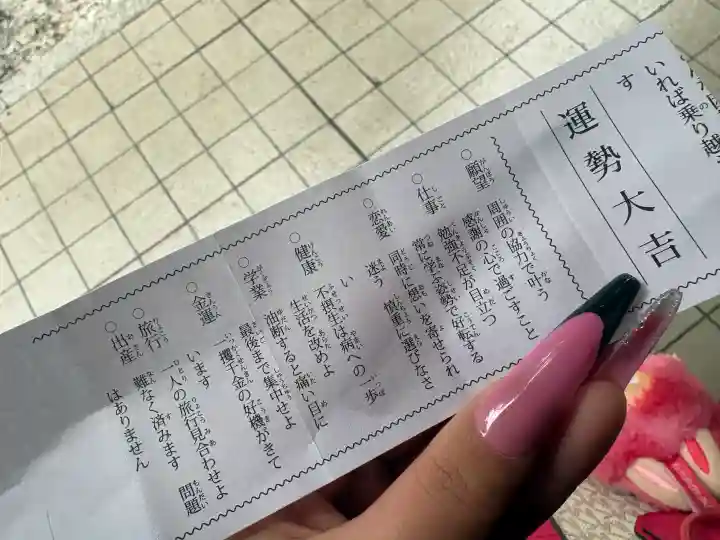 いれば乗り越
す
運勢大吉
○願望 周囲の協力で叶う
感謝の心で過ごすこと
○仕事 勉強不足が目立つ
常に学ぶ姿勢で好転する
○恋愛 同時に想いを寄せられ
迷う 慎重に選びなさ
い
○健康 不摂生は病への一歩
生活を改めよ
○学業 油断すると痛い目に
最後まで集中せよ
○金運 一攫千金の好機がきて
います
○旅行 一人の旅行見合わせよ
○出産 難なく済みます 問題
はありません